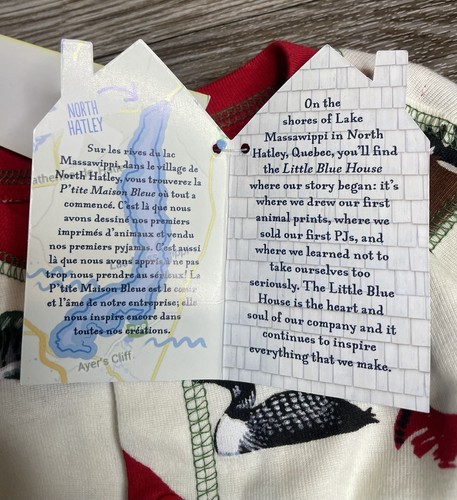 NORTH
HATLEY
Sur les rives du lac
Massawippi, dans le village de
North Hatley, vous trouverez la
P'tite Maison Bleue où tout a
commencé. C'est là que nous
avons dessiné nos premiers
imprimés d'animaux et vendu
nos premiers pyjamas. C'est aussi
là que nous avons appris à ne pas
trop nous prendre au sérieux! La
P'tite Maison Bleue est le cœur
et l'âme de notre entreprise; elle
nous inspire encore dans
toutes nos créations.
Ayer's Cliff
On the
shores of Lake
Massawippi in North
Hatley, Quebec, you'll find
the Little Blue House
where our story began: it's
where we drew our first
animal prints, where we
sold our first PJs, and
where we learned not to
take ourselves too
seriously. The Little Blue
House is the heart and
soul of our company and it
continues to inspire
everything that we make.